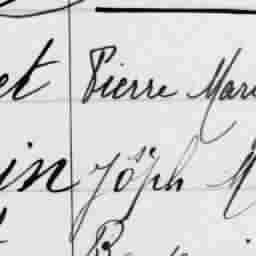 et Pierre Mari
in Jôsph M